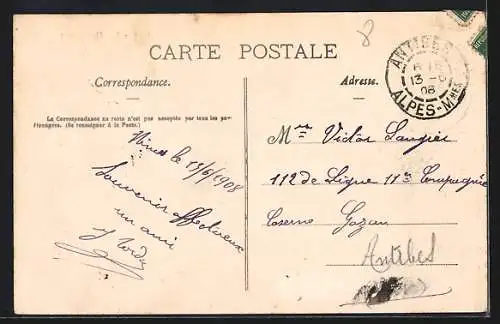 8
CARTE POSTALE
ANTIBES
13 -6
08
ALPES-Mmes
Correspondance.
Adresse.
La Correspondance au recto n'est pas acceptée par tous les pays
étrangers. (Se renseigner à la Poste.)
le 13/6/1908
Souvenir affectueux
un ami
Mr Victor Laugier
112 de Ligne 11e Compagnie
Caserne Gazan
Antibes